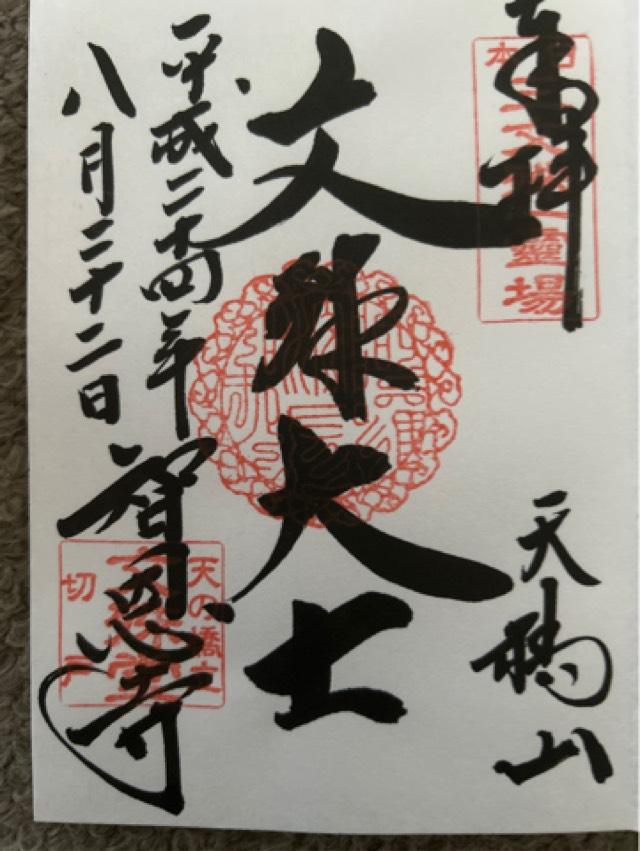 奉拝
日本
三文殊靈場
天橋山
文殊大士
平成二十四年
八月二十二日
智恩寺
天の橋立
文殊堂
切戸